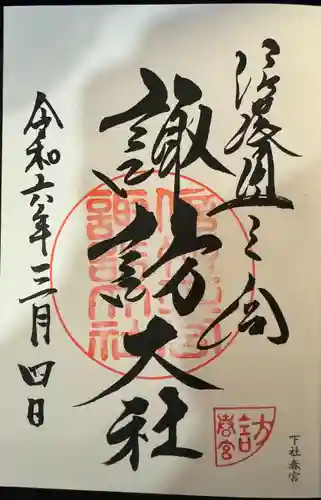 信濃國一之宮
諏訪大社
令和六年三月四日
春宮
下社春宮